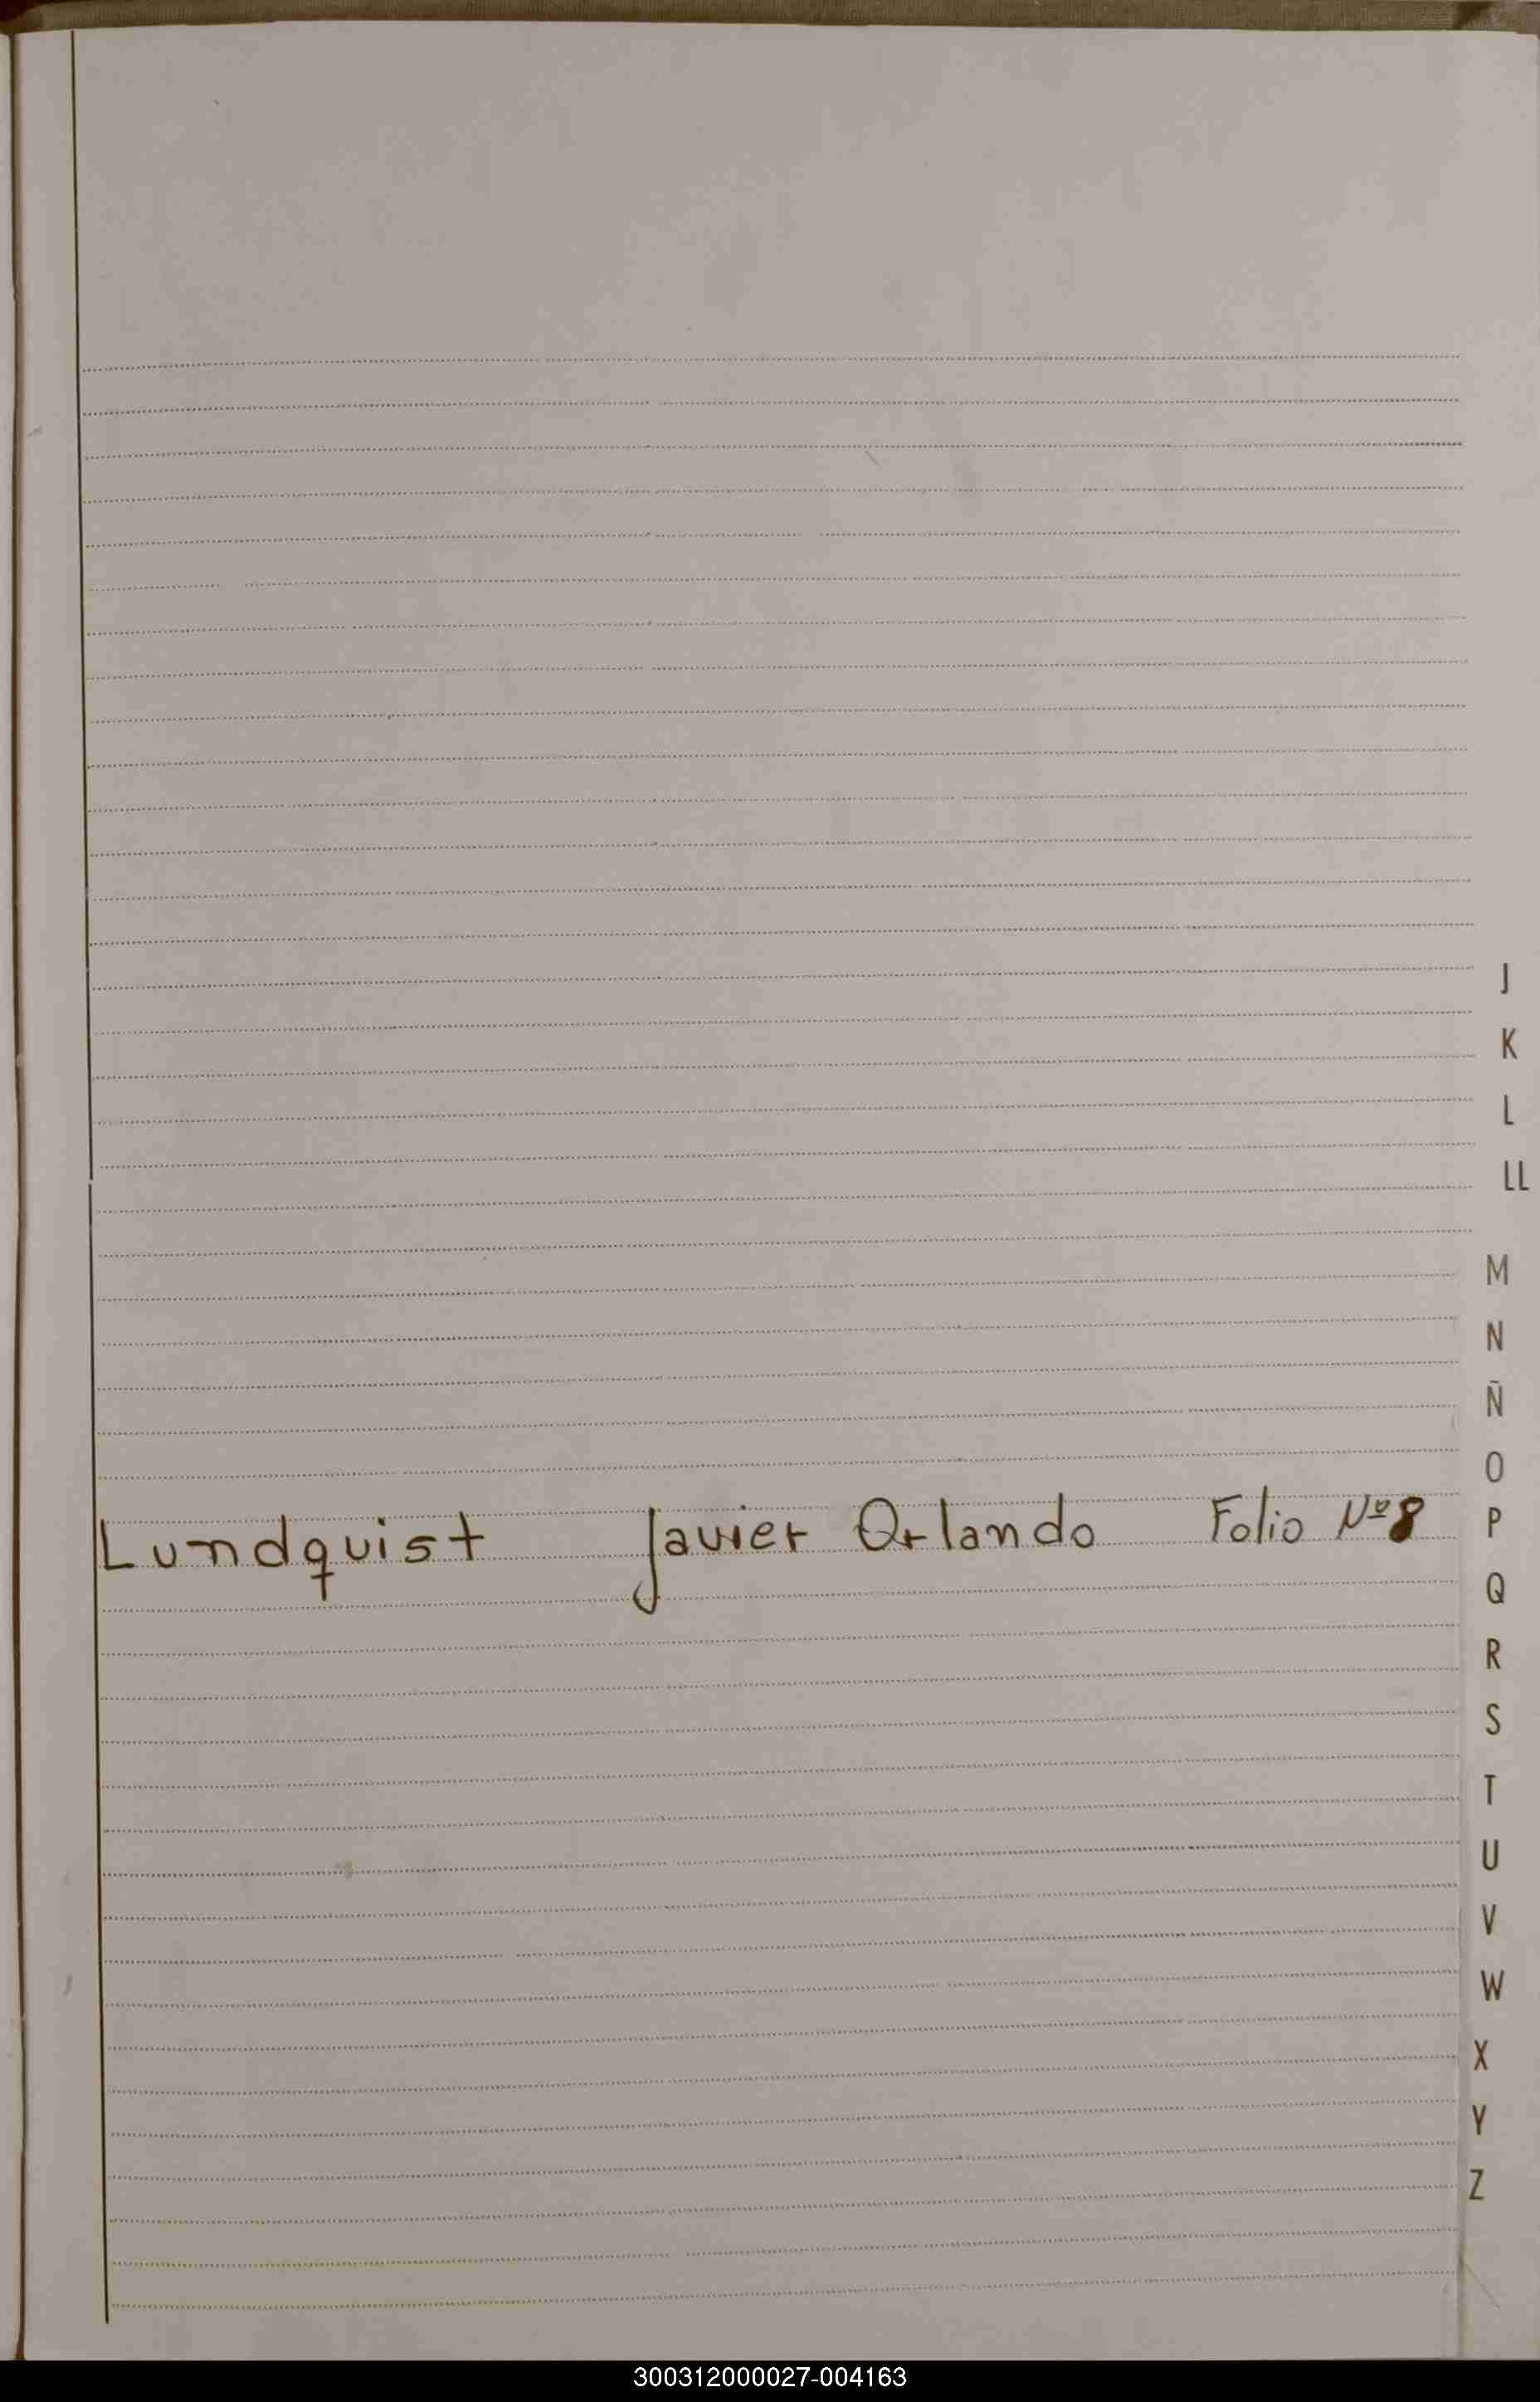 J
K
L
LL
M
N
Ñ
O
Lundquist Javier Orlando Folio Nº 8
P
Q
R
S
T
U
V
W
X
Y
Z
300312000027-004163